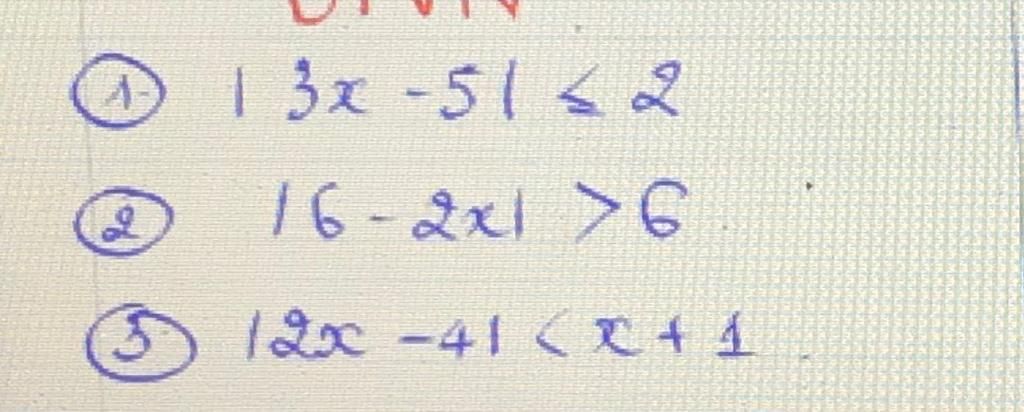 ① | 3x - 5 | ≤ 2
② | 6 - 2x | > 6
③ | 2x - 4 | < x + 1